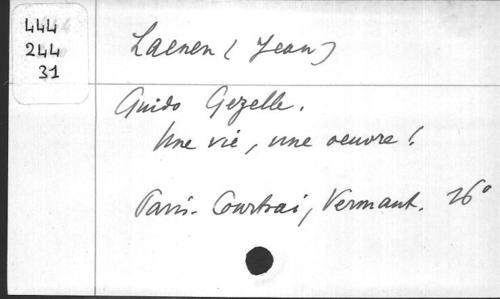 444
244
31
Laenen (Jean)
Guido Gezelle.
Une vie, une oeuvre!
Paris-Courtrai, Vermaut. 16°